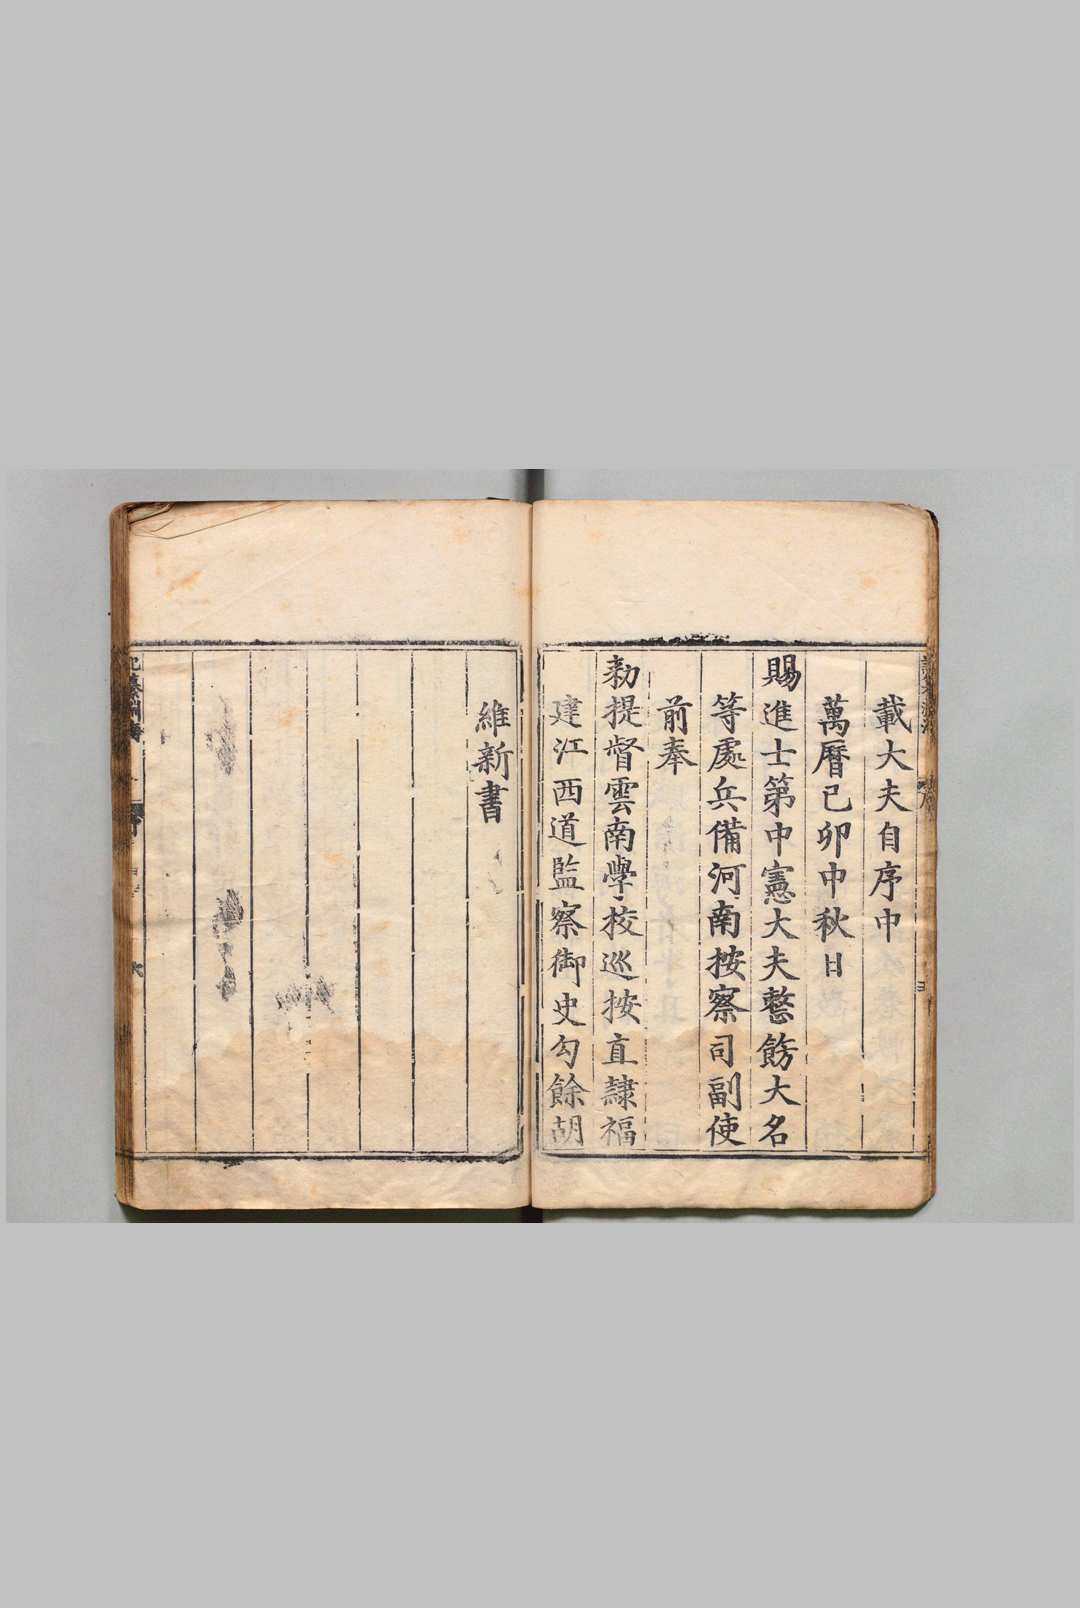 載大夫自序中
萬曆己卯中秋日
賜進士第中憲大夫整飭大名
等處兵備河南按察司副使
前奉
勑提督雲南學校巡按直隸福
建江西道監察御史勾餘胡
維新書
記纂淵海